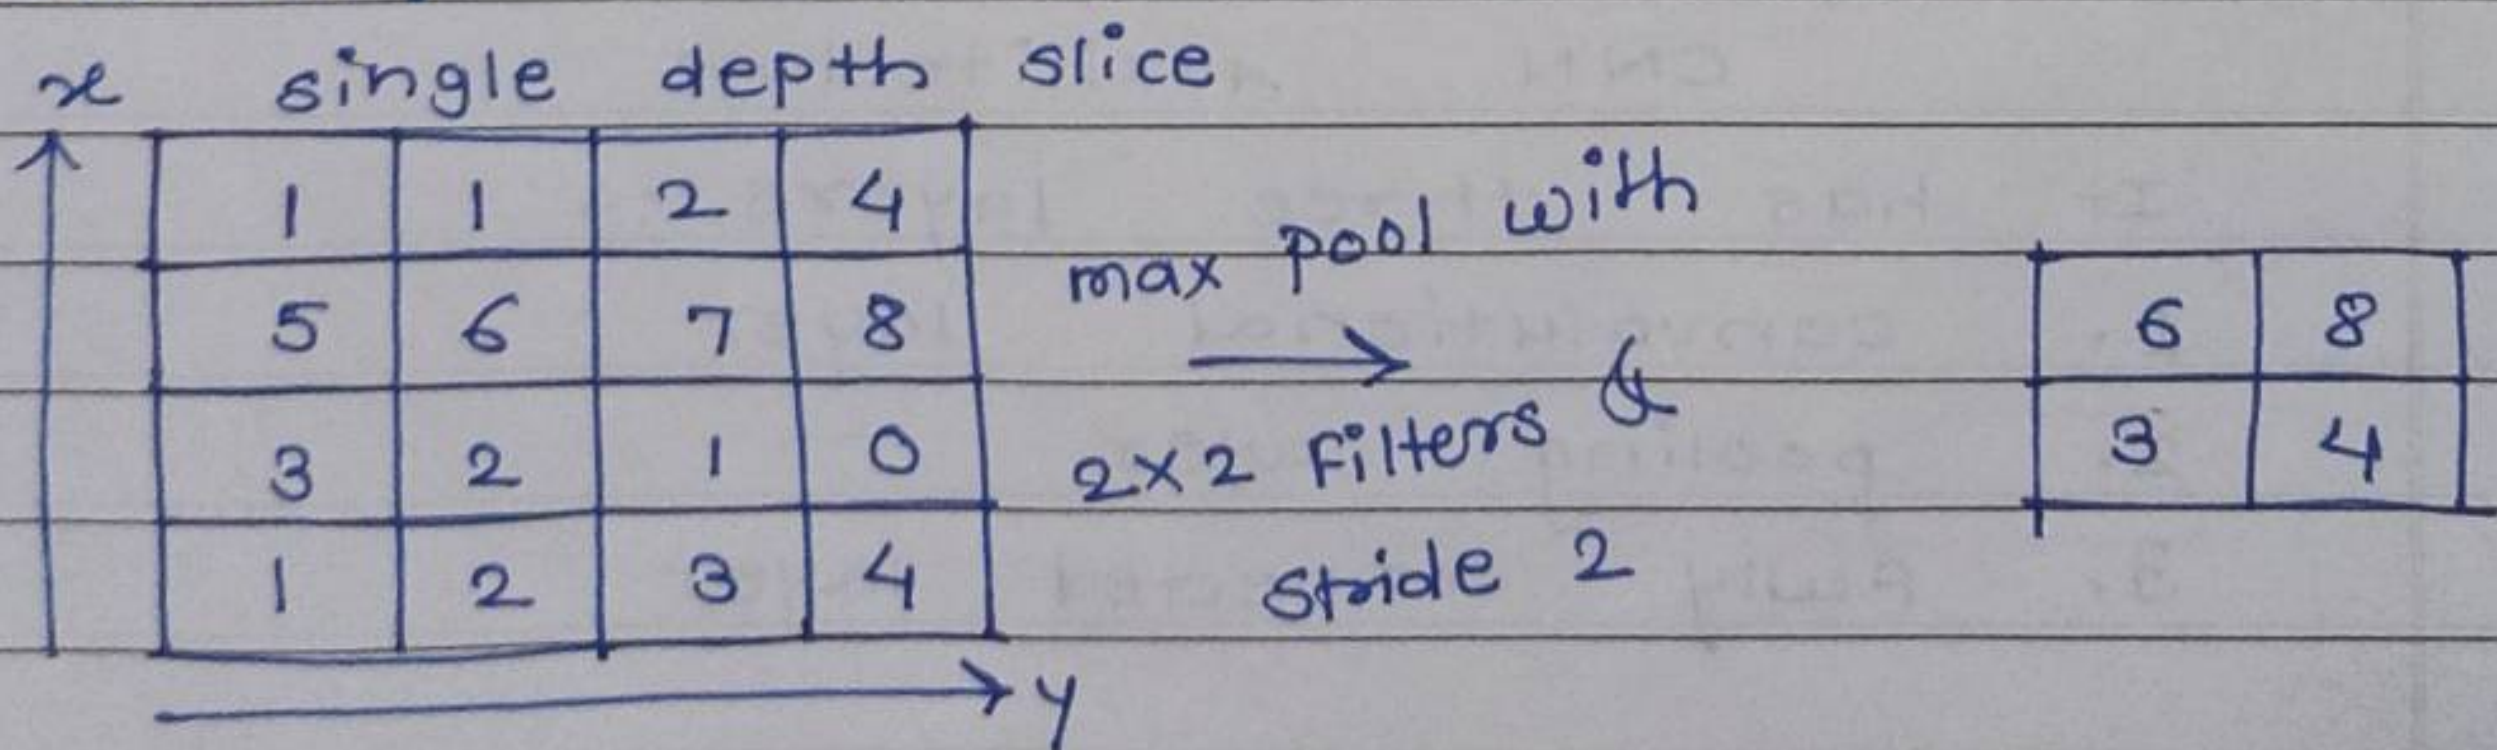 x single depth slice
1 1 2 4
5 6 7 8
3 2 1 0
1 2 3 4
y
max pool with
→
2x2 Filters &
stride 2
6 8
3 4